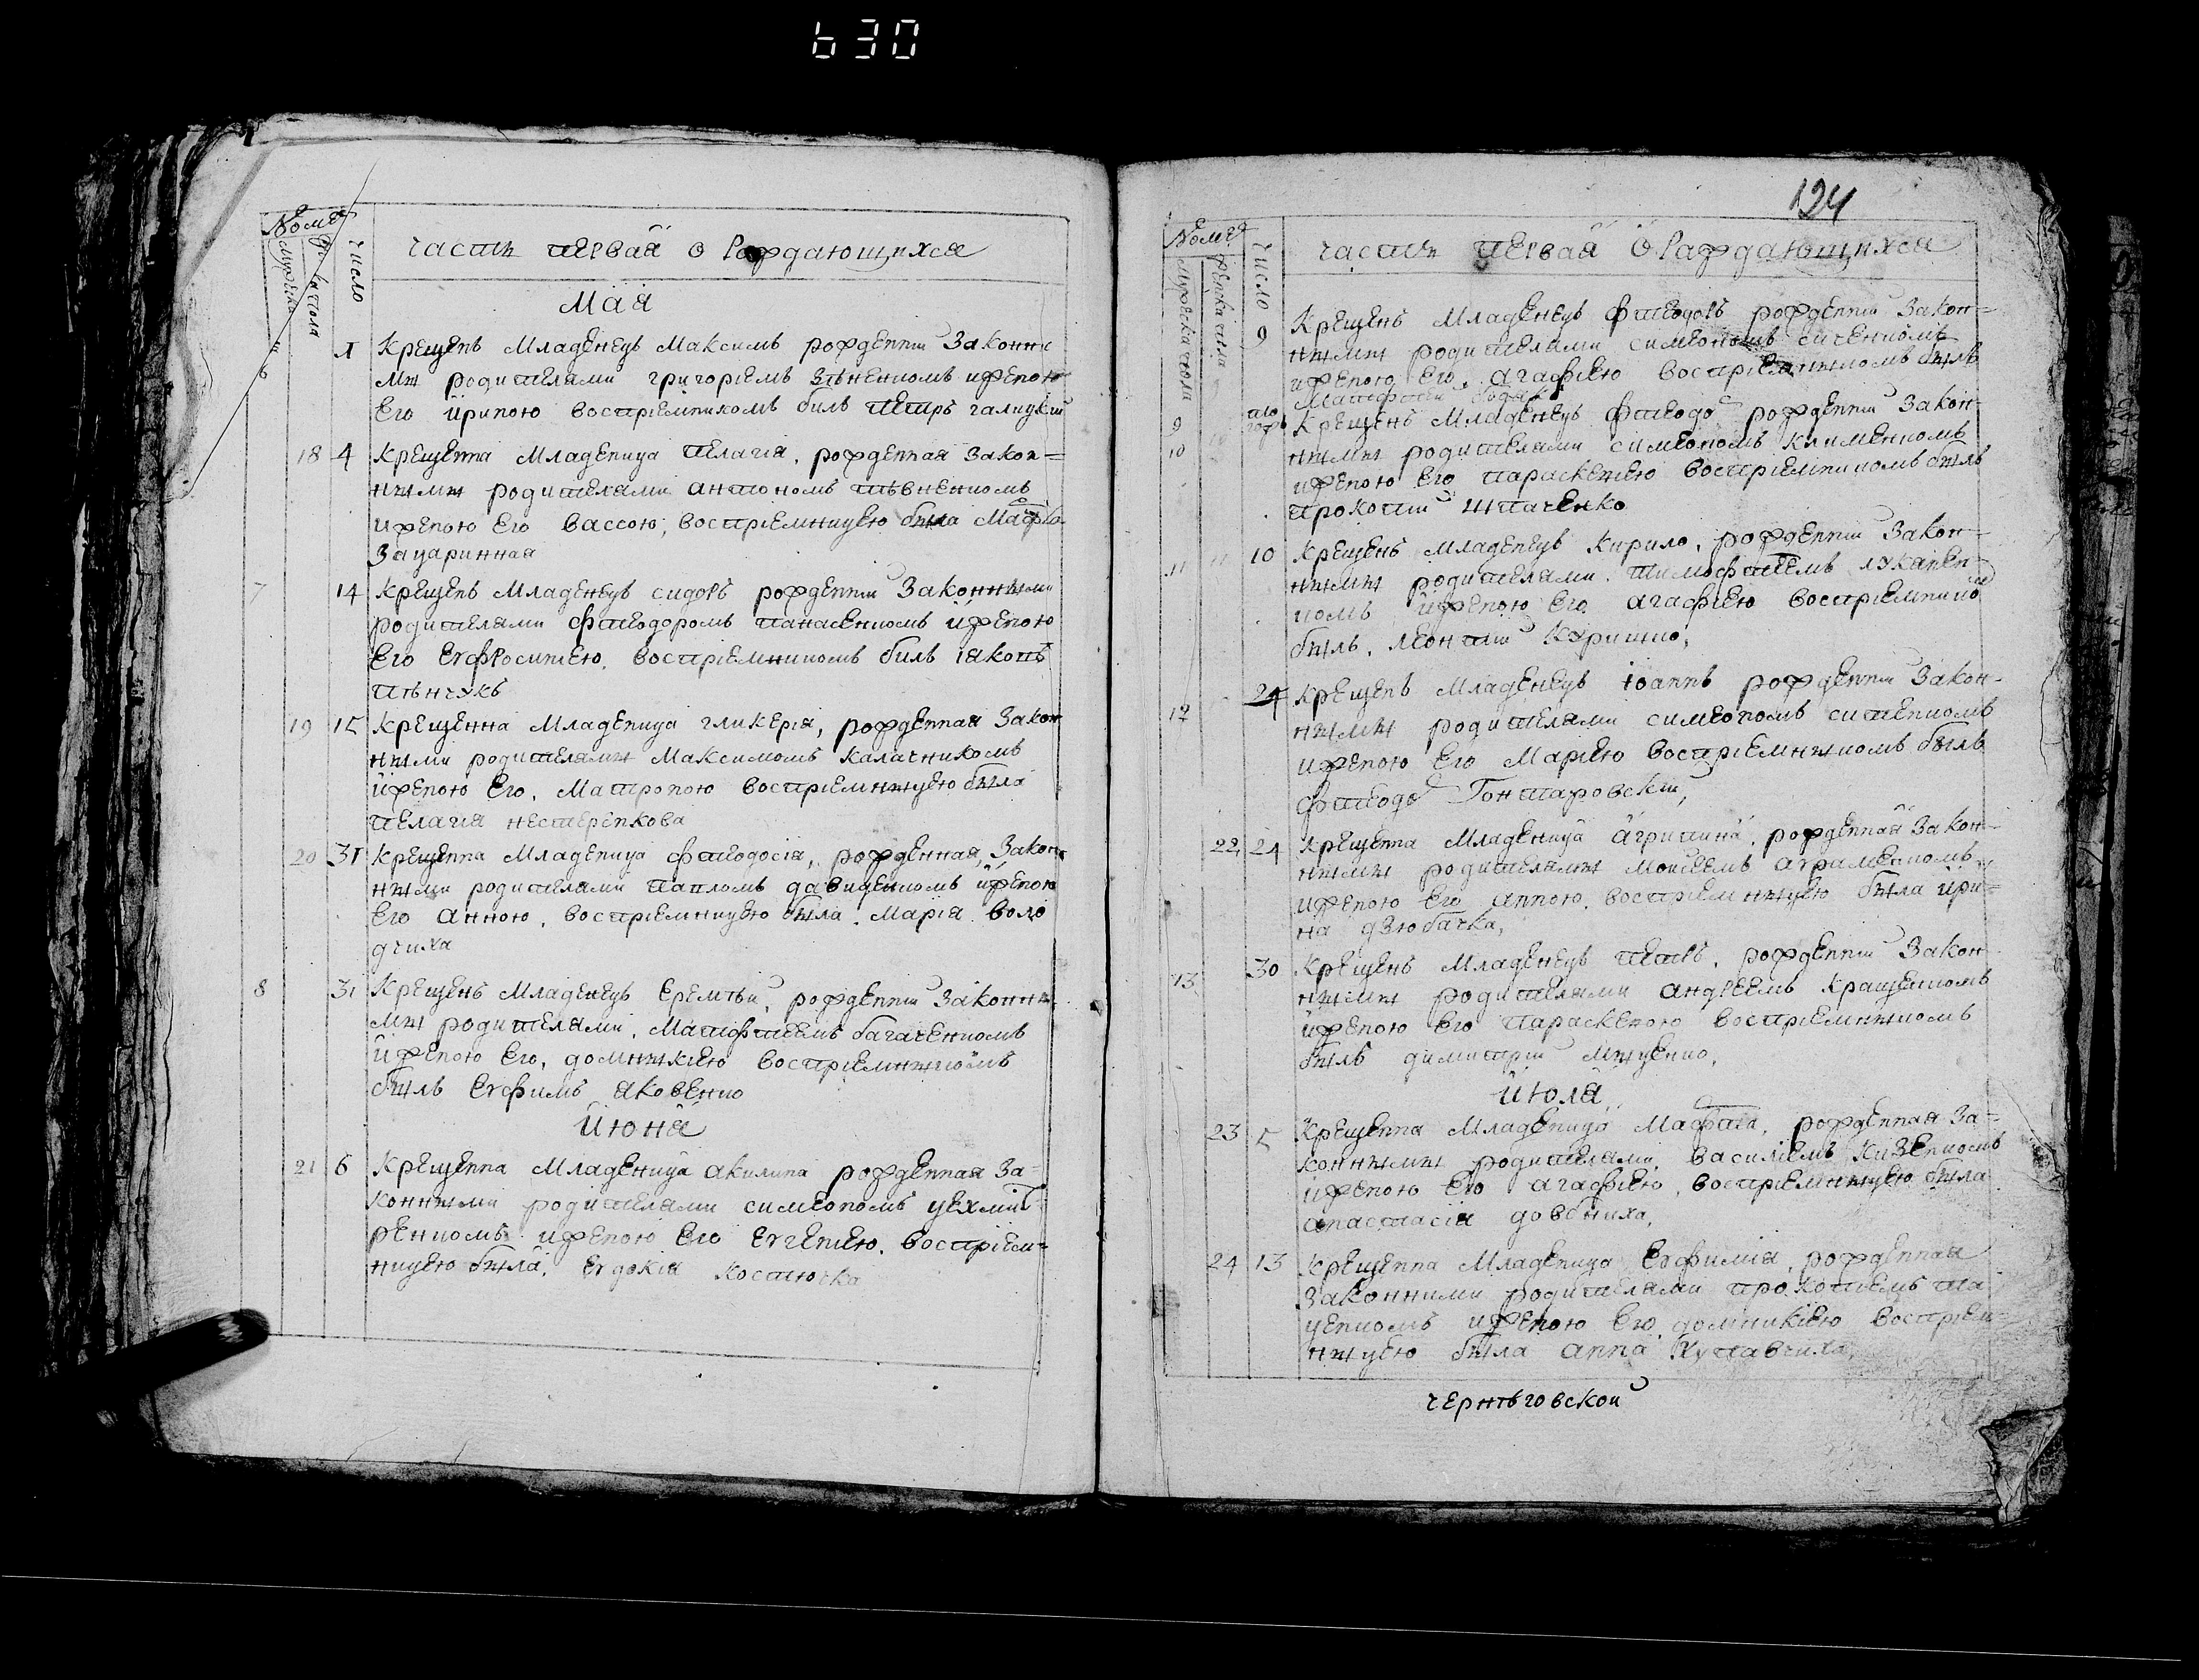 630
Номеръ
Мужеска
Женска пола
число
часть первая о Рождающихся
Мая
6
1
Крещенъ Младенецъ Максимъ рожденній Законны
мы родителями григоріемъ зѣненкомъ иженою
Его іриною воспріемникомъ билъ петръ галицкій
18 4 Крещенна Младеница пелагія, рожденная Закон=
нымы родителями антономъ пѣвненкомъ
иженою Его вассою, воспріемницею была Мафа
Зацаринная
7 14 Крещенъ Младенецъ сидоръ рожденній Законными
родителями фтеодоромъ панасенкомъ иженою
Его Еѵфросиніею, воспріемникомъ билъ іаковъ
пѣнчукъ
19 15 Крещенна Младеница гликерія, рожденная Закон
ными родителямы Максимомъ Калачникомъ
иженою Его, Матроною воспріемныцею была
пелагия нестеренкова
20 31 Крещенна Младеница фтеодосія, рожденная, Закон
ными родителями павломъ давиденкомъ иженою
Его Анною, воспріемницею была Марія воло
дчиха
8 31 Крещенъ Младенецъ Еремѣй, рожденній Законны
мы родителями, Матфтеемъ багаченкомъ
иженою Его, домныкіею воспріемныкомъ
былъ Еѵфимъ яковенко
Июня
21 6 Крещенна Младеница акилина рожденная За=
конными родителями симеономъ цехмист
ренкомъ иженою Его Еѵгеніею, воспріем=
ницею была, Еѵдокія Костючка
124
Номеръ
Мужеска пола
Женска пола
число
часть первая о Раждающихся
9 Крещенъ Младенецъ фтеодоръ рожденній Закон=
нымы родителями симеономъ сиченкомъ
иженою Его, агафіею воспріемныкомъ былъ
Матфтій
9
10
Крещенъ Младенецъ фтеодо рожденній Закон
нымы родителями симеономъ клименкомъ
иженою Его параскевіею воспріемникомъ былъ
прокопій
11 10 Крещенъ Младенецъ Кирило, рожденній Закон=
нымы родителями, тимофтеемъ лукашен
комъ иженою Его агафіею воспріемнико
былъ, леонтій Куришко,
12 24 Крещенъ Младенецъ іоаннъ рожденній Закон-
нымы родителями симеономъ ситенкомъ
иженою Его Маріею воспріемныкомъ былъ
фтеодо Гонтаровскій,
22 24 Крещенна Младеница агрипина, рожденная Закон=
нымы родителямы Моисеемъ авраменкомъ
иженою Его анною, воспріемныцею была ири=
на дзюбачка,
13 30 Крещенъ Младенецъ петръ, рожденній Закон
нымы родителями андреемъ Кращенкомъ
иженою Его параскевою воспріемныкомъ
былъ димитрій мыценко,
Июля
23 5 Крещенна Младеница Марфта, рожденная За=
коннымы родителями василіемъ Кизенкомъ
иженою Его агафіею, воспріемныцею была
анастасія довбниха,
24 13 Крещенна Младеница Еѵфимія, рожденная
Законними родителями прокопіемъ па
ценкомъ иженою Его домникіею воспріем=
ныцею была анна Купавчиха,
чернѣговской